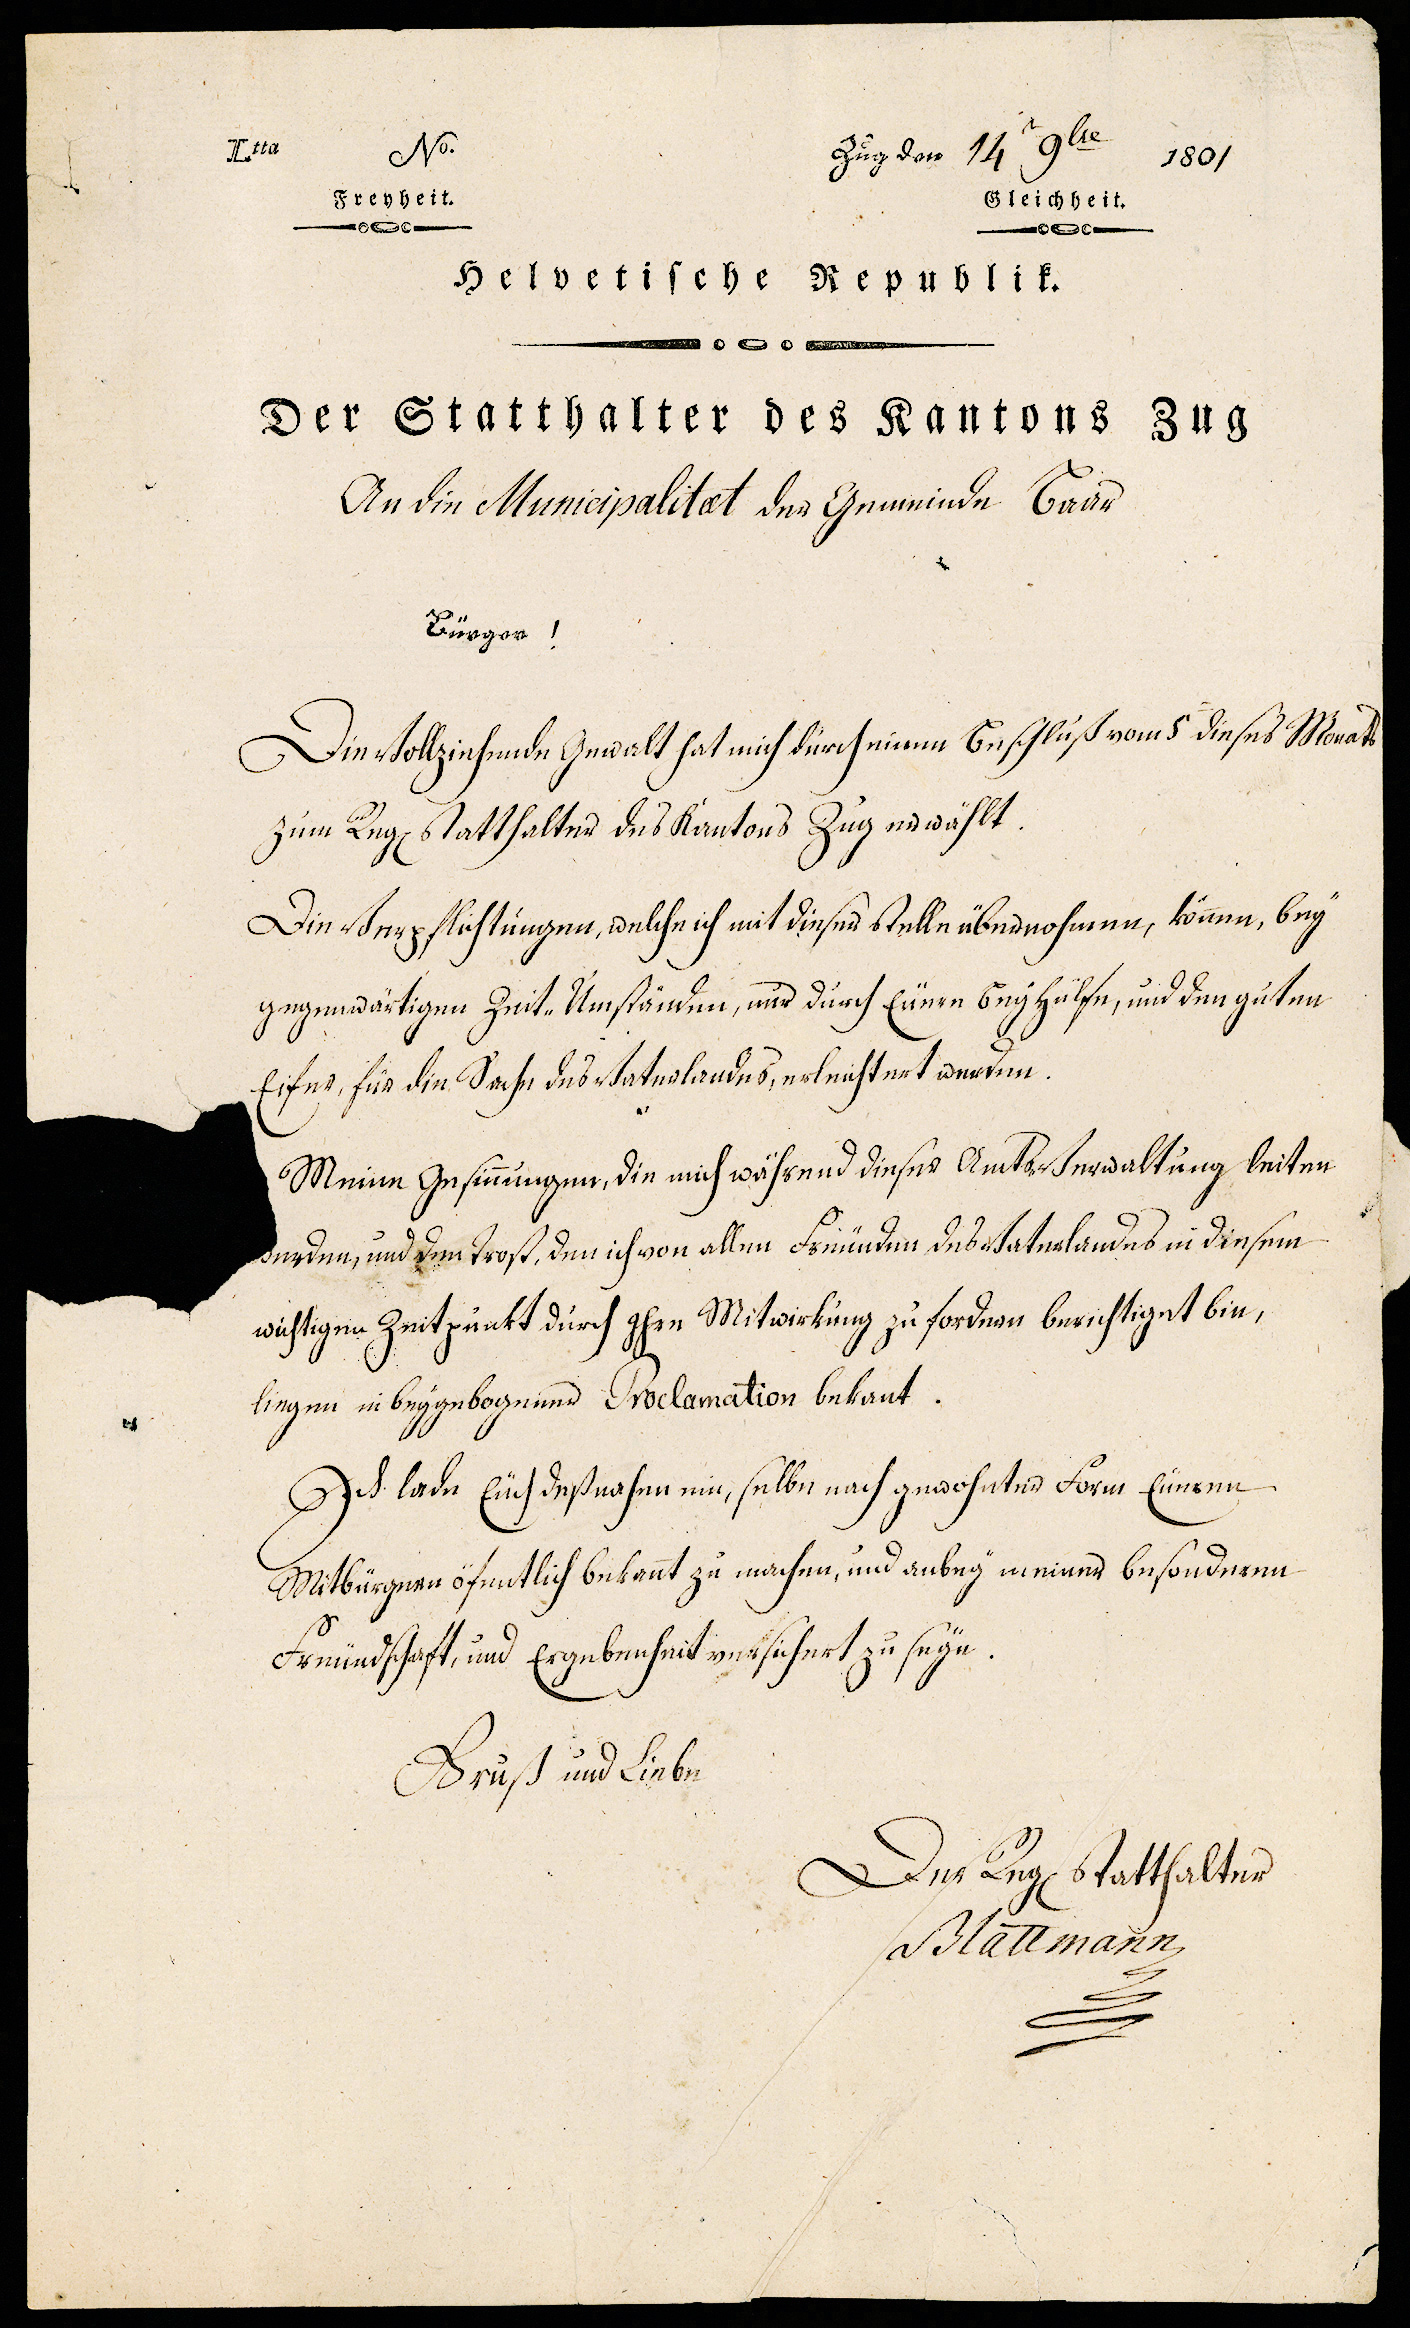 Ltta No. Zug den 14t 9bre 1801
Freyheit. Gleichheit.
Helvetische Republik.
Der Statthalter des Kantons Zug
An die Municipalitæt der Gemeinde Baar
Bürger!
Die Vollziehende Gewalt hat mich durch einen Beschluß vom 5 dieses Monats
zum Reg. Statthalter des Kantons Zug erwählt.
Die Verpflichtungen, welche ich mit dieser Stelle übernohmen, könen, bey
gegenwärtigen Zeit-Umständen, nur durch Eüere Beyhülfe, und den guten
Eifer, für die Sache des Vaterlandes, erleichtert werden.
Meine Gesinungen, die mich während dieser Amts-Verwaltung leiten
werden, und den Trost, den ich von allen Freünden des Vaterlandes in diesem
wichtigen Zeitpunkt durch Ihre Mitwirkung zu fordern berichtiget bin,
liegen in beygebogener Proclamation bekant.
Ich lade Eüch deßnahen ein, selbe nach gewohnter Form Eüeren
Mitbürgeren öfentlich bekant zu machen, und anbey meiner besonderen
Freündschaft, und Ergebenheit versichert zu seyn.
Gruß und Liebe
Der Reg. Statthalter
Blattmann